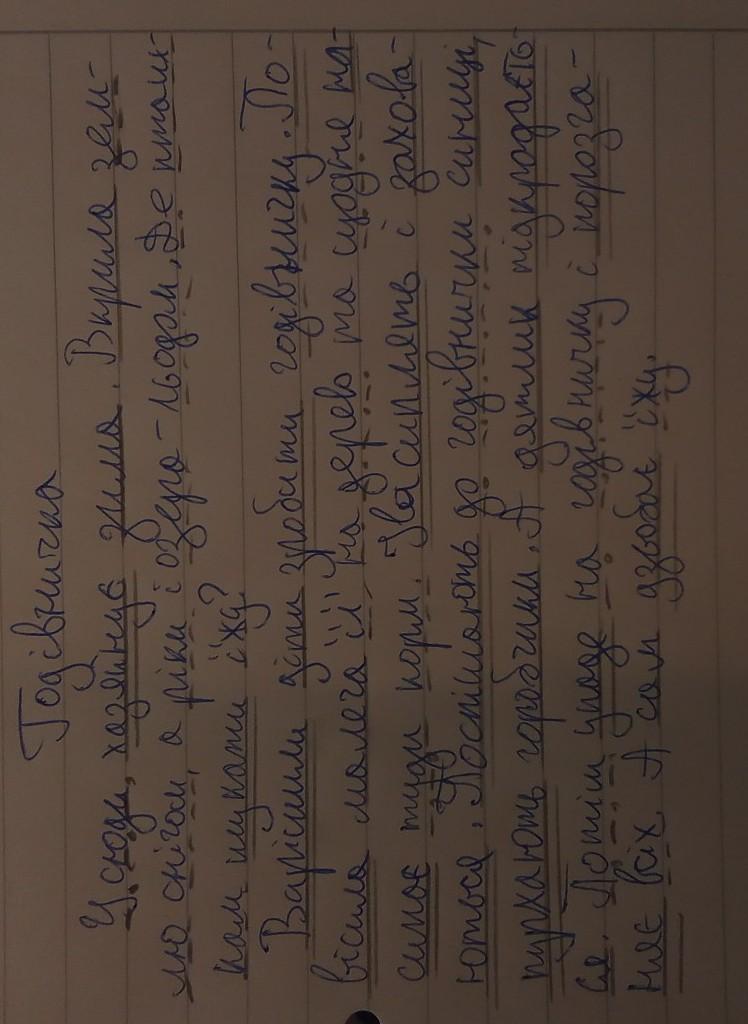 Годівничка
Усюди, хазяйнує зима. Вкрила зем-
лю снігом, а ріки і озера - льодом. Де пташ-
кам шукати їжу?
Вирішили діти зробити годівничку. По-
вісила малеча її на дерево та щодня на-
сипає туди корм. Насиплять і захова-
ються. Поспішають до годівнички синиці,
пурхають горобчики. А дятлик підкрадаєть-
ся. Потім упаде на годівничку і порозга-
няє всіх. А сам дзьобає їжу.